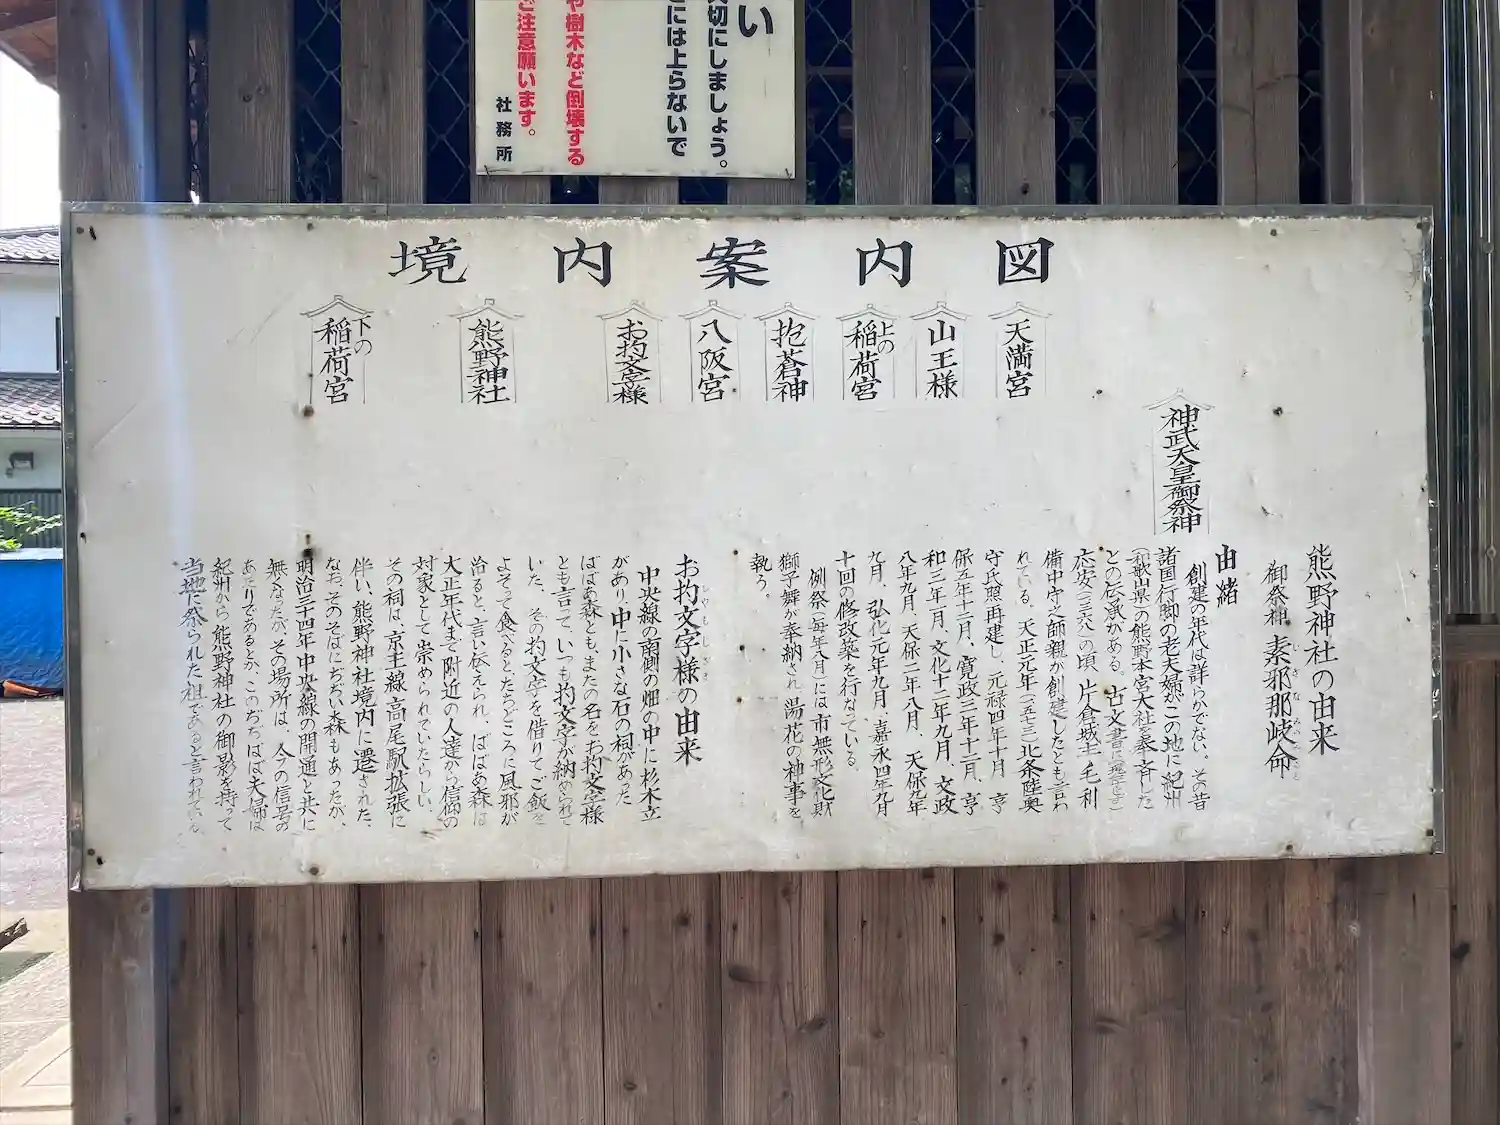 い
切にしましょう。
には上らないで
や樹木など倒壊する
ご注意願います。
社務所
境内案内図
下の稲荷宮
熊野神社
お杓文字様
八阪宮
抱蒼神
上の稲荷宮
山王様
天満宮
神武天皇御祭神
熊野神社の由来
御祭神 素邪那岐命
由緒
創建の年代は詳らかでない。その昔
諸国行脚の老夫婦がこの地に紀州
(和歌山県)の熊野本宮大社を奉斉した
との伝承がある。古文書に
応安(一三六八)の頃、片倉城主毛利
備中守之師親が創建したとも言わ
れている。天正元年(一五七三)北条陸奥
守氏照再建し、元禄四年十月 亨
保五年十二月、寛政三年十二月、亨
和三年二月、文化十二年九月、文政
八年九月、天保二年八月、天保九年
九月、弘化元年九月、嘉永四年九月
十回の修改築を行なっている。
例祭(毎年八月)には市無形文化財
獅子舞が奉納され、湯花の神事を
執う。
お杓文字様の由来
中央線の南側の畑の中に杉木立
があり、中に小さな石の祠があった
ばばあ森とも、またの名をお杓文字様
とも言って、いつも杓文字が納められて
いた。その杓文字を借りてご飯を
よそって食べるとたちどころに風邪が
治ると言い伝えられ、ばばあ森は
大正年代まで附近の人達から信仰の
対象として崇められていたらしい。
その祠は、京王線高尾駅拡張に
伴い、熊野神社境内に遷された、
なお、そのそばにぢぢい森もあったが、
明治三十四年中央線の開通と共に
無くなったが、その場所は、今の信号の
あたりであるとか、このぢぢばば夫婦は
紀州から熊野神社の御影を持って
当地に祭られた祖であると言われている